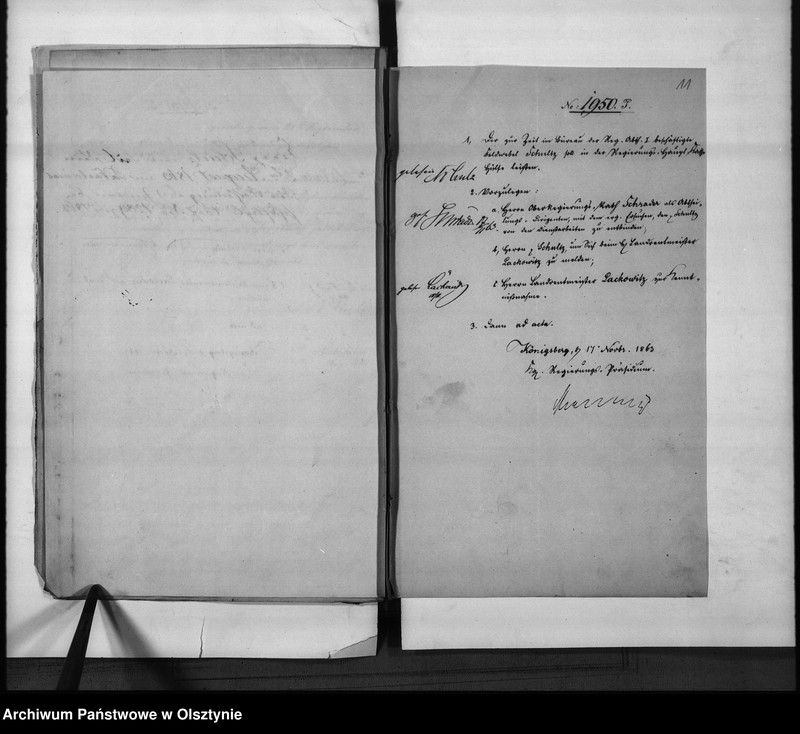 11
No: 1950. P.
1, Der zur Zeit im Büreau der Reg. Abth. I beschäftigte
Feldwebel Schultz soll in der Regierungs-Haupt-Kasse
Hülfe leisten.
gelesen Schultz
2. Vorzulegen:
a. Herrn Oberregierungs-Rath Schrader als Abthei-
lungs-Dirigenten, mit dem erg. Ersuchen, den p Schultz
von den Dienstarbeiten zu entbinden;
b, Herrn p Schultz, um Sich beim H Landrentmeister
Lackowitz zu melden;
gelesen
c Herrn Landrentmeister Lackowitz zur Kennt-
nißnahme.
3. Dann ad acta.
Königsberg, d 17. Novbr. 1863
Kgl. Regierungs-Präsidium.
Archiwum Państwowe w Olsztynie